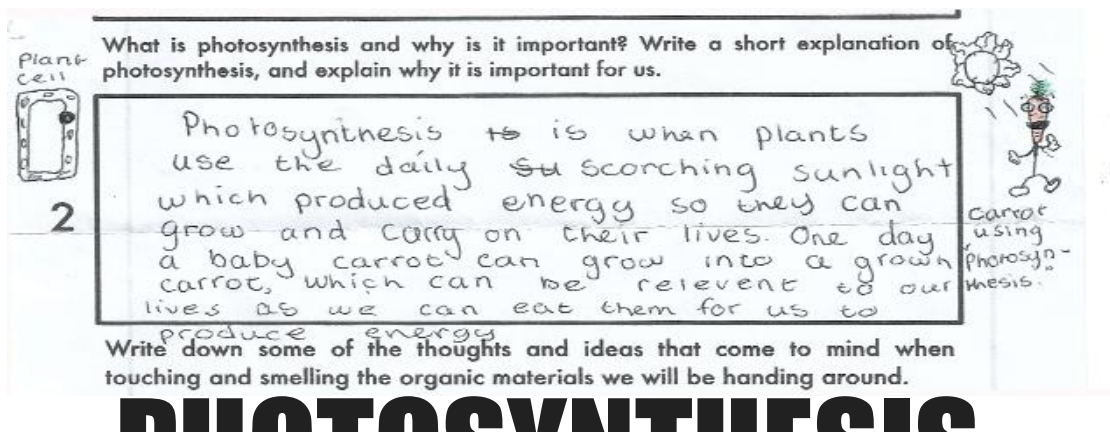 What is photosynthesis and why is it important? Write a short explanation of
photosynthesis, and explain why it is important for us.
Plant
cell
2
Photosynthesis is is when plants
use the daily su scorching sunlight
which produced energy so they can
grow and carry on their lives. One day
a baby carrot can grow into a grown
carrot, which can be relevent to our
lives as we can eat them for us to
produce energy
carrot
using
"Photosyn-
thesis."
Write down some of the thoughts and ideas that come to mind when
touching and smelling the organic materials we will be handing around.
PHOTOSYNTHESIS